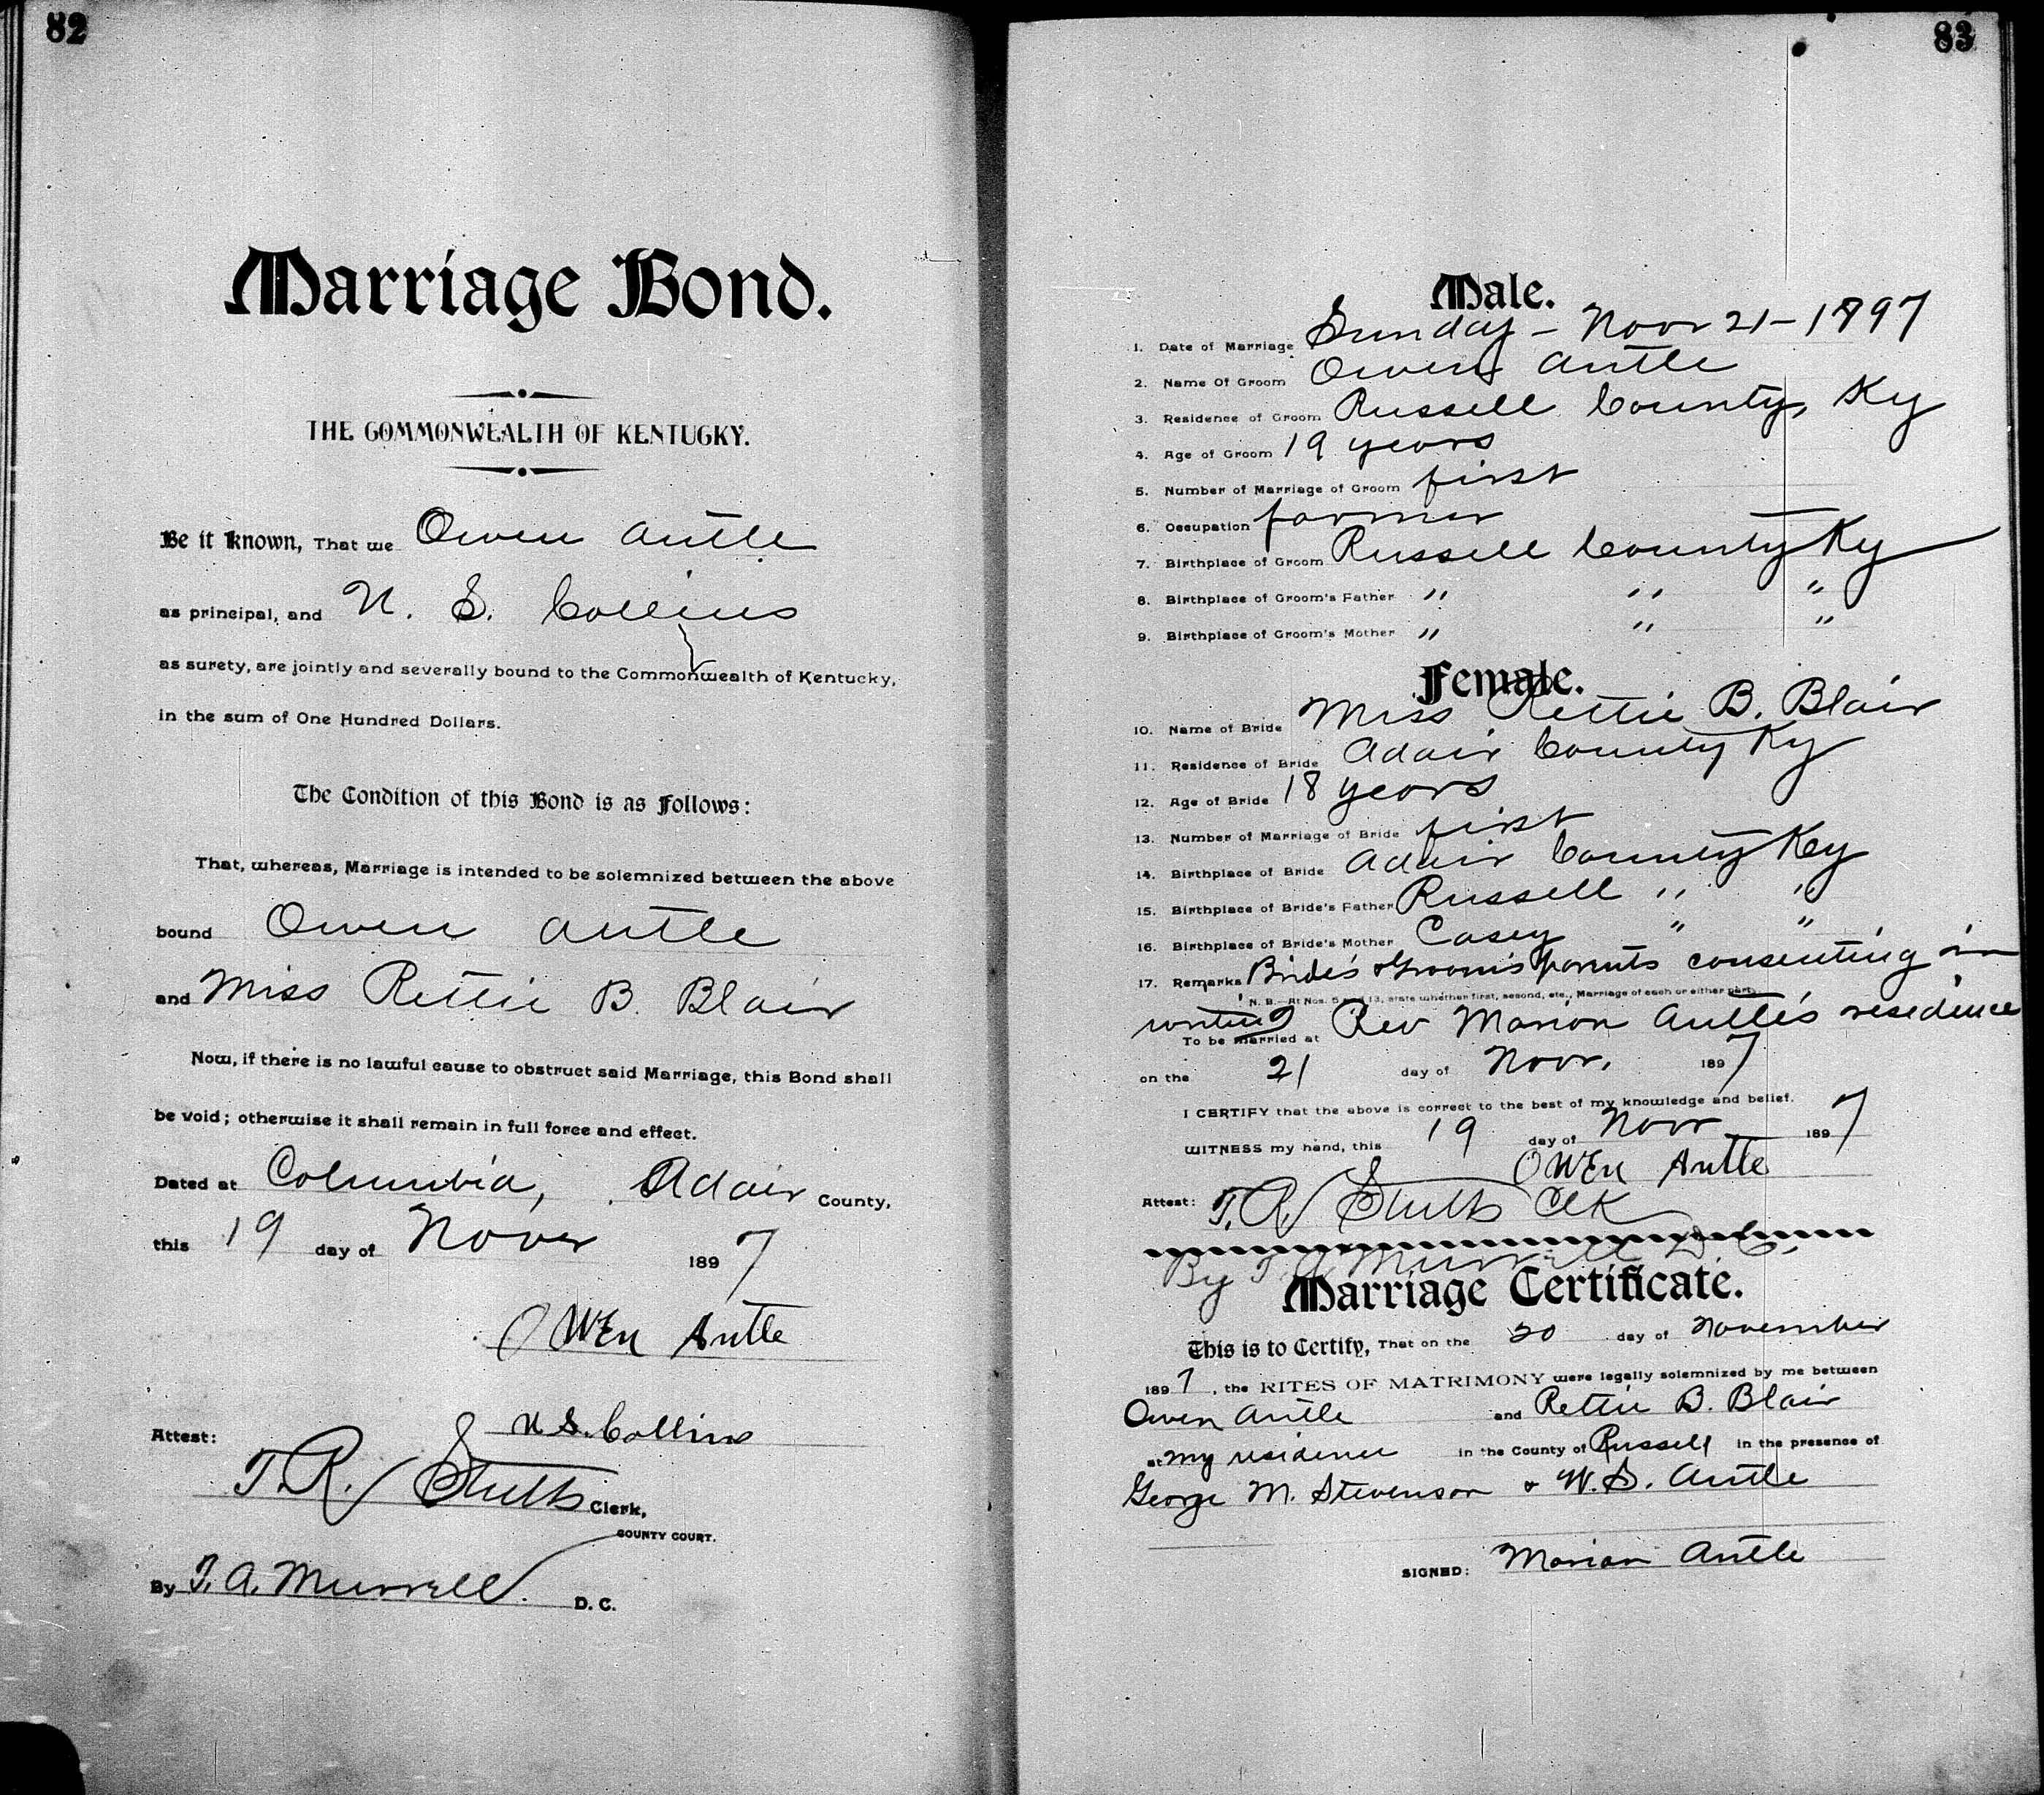 82
Marriage Bond.
THE COMMONWEALTH OF KENTUCKY.
Be it known, That we Owen Antle
as principal, and N. S. Collins
as surety, are jointly and severally bound to the Commonwealth of Kentucky,
in the sum of One Hundred Dollars.
The Condition of this Bond is as Follows:
That, whereas, Marriage is intended to be solemnized between the above
bound Owen Antle
and Miss Rettie B. Blair
Now, if there is no lawful cause to obstruct said Marriage, this Bond shall
be void; otherwise it shall remain in full force and effect.
Dated at Columbia, Adair County,
this 19 day of Novr 1897
Owen Antle
N S. Collins
Attest:
T. R. Stults Clerk,
COUNTY COURT.
By T. A. Murrell. D. C.
83
Male.
1. Date of Marriage Sunday - Novr 21 - 1897
2. Name Of Groom Owen Antle
3. Residence of Groom Russell County, Ky
4. Age of Groom 19 years
5. Number of Marriage of Groom first
6. Occupation farmer
7. Birthplace of Groom Russell County Ky
8. Birthplace of Groom's Father " " "
9. Birthplace of Groom's Mother " " "
Female.
10. Name of Bride Miss Rettie B. Blair
11. Residence of Bride Adair County Ky
12. Age of Bride 18 years
13. Number of Marriage of Bride first
14. Birthplace of Bride Adair County Ky
15. Birthplace of Bride's Father Russell " "
16. Birthplace of Bride's Mother Casey " "
17. Remarks Bride's & Groom's parents consenting in
N. B.—At Nos. 5 and 13, state whether first, second, etc., Marriage of each or either party.
writing
To be married at Rev Marion Antle's residence
on the 21 day of Novr. 1897
I CERTIFY that the above is correct to the best of my knowledge and belief.
WITNESS my hand, this 19 day of Novr 1897
Owen Antle
Attest: T. R. Stults Clk
By T. A. Murrell D. C.
Marriage Certificate.
This is to Certify, That on the 20 day of November
1897, the RITES OF MATRIMONY were legally solemnized by me between
Owen Antle and Rettie B. Blair
at my residence in the County of Russell in the presence of
George M. Stevenson & W. S. Antle
SIGNED: Marion Antle